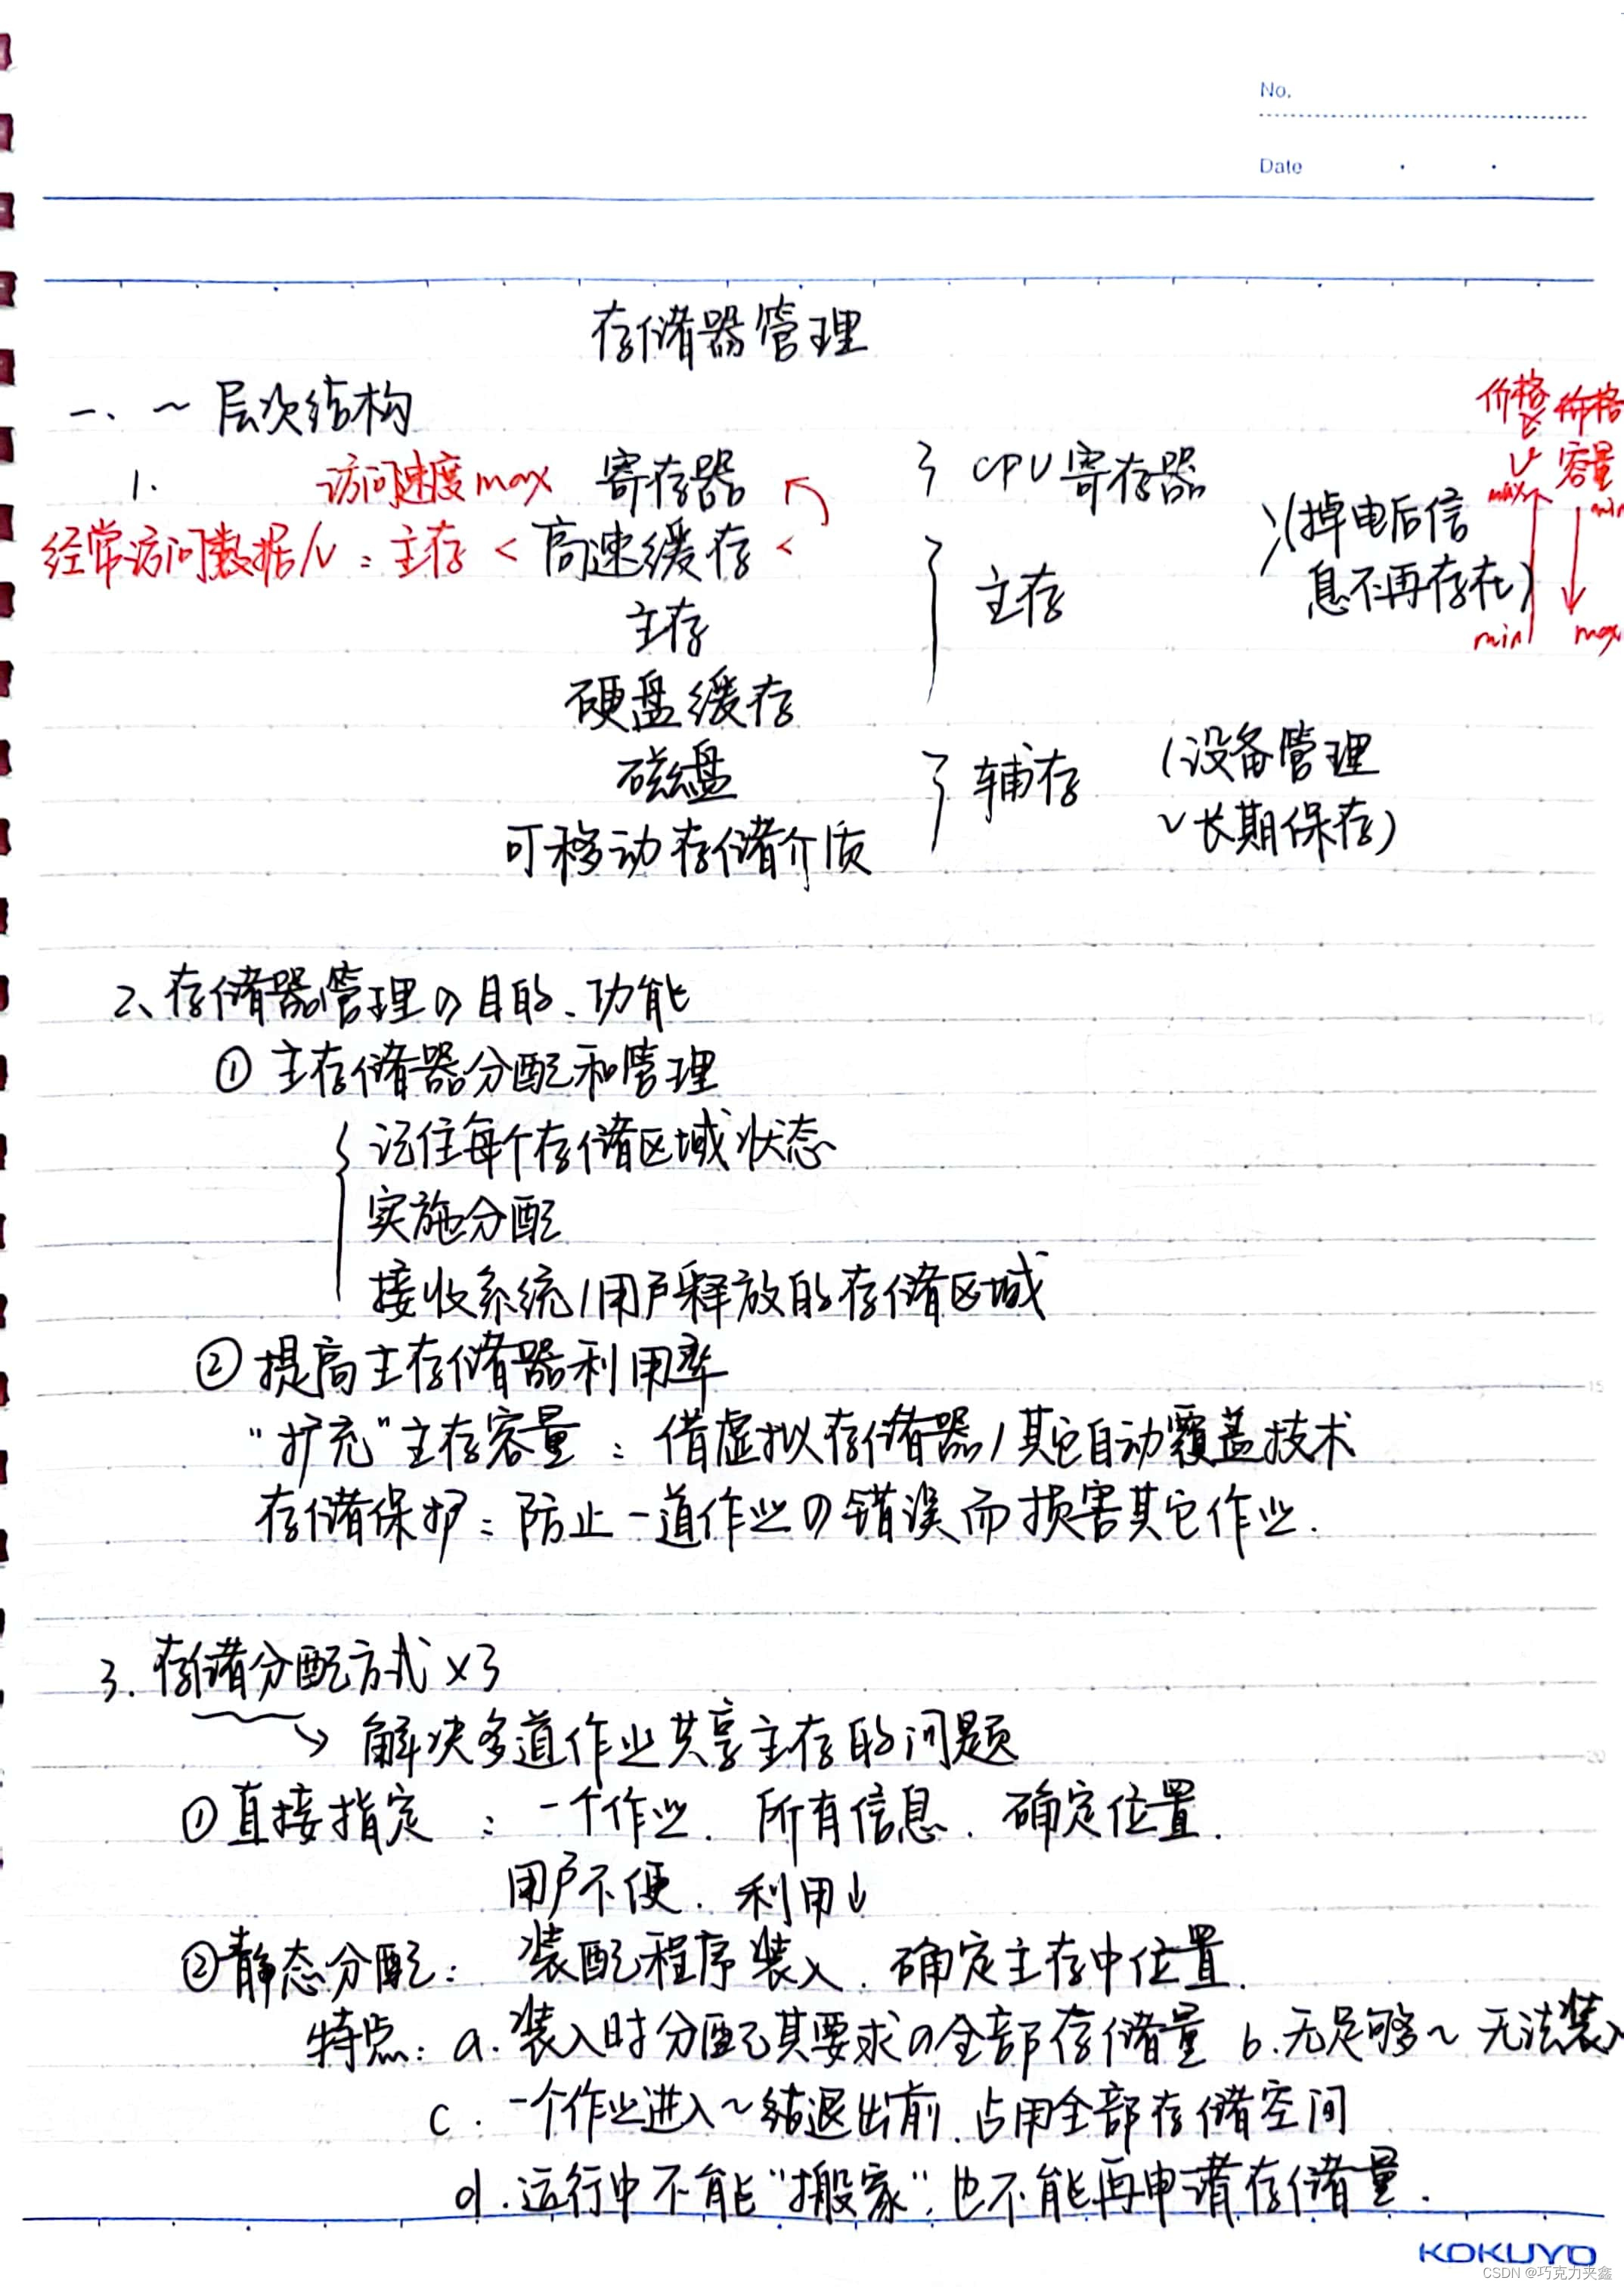 No.
Date
存储器管理
一、~层次结构
1. 访问速度max 寄存器 } CPU寄存器
经常访问数据/v: 主存 < 高速缓存 <
主存 } 主存 (掉电后信
息不再存在)
硬盘缓存
磁盘 } 辅存 (设备管理
可移动存储介质 长期保存)
价格 价格
容量
max min
min max
2、存储器管理の目的、功能
① 主存储器分配和管理
{ 记住每个存储区域状态
实施分配
接收系统/用户释放的存储区域
② 提高主存储器利用率
"扩充"主存容量: 借虚拟存储器/其它自动覆盖技术
存储保护: 防止一道作业の错误而损害其它作业.
3. 存储分配方式 ×3
↘ 解决多道作业共享主存的问题
① 直接指定: 一个作业. 所有信息. 确定位置.
用户不便. 利用↓
② 静态分配: 装配程序装入. 确定主存中位置.
特点: a. 装入时分配其要求の全部存储量 b. 无足够~无法装入
c. 一个作业进入~结退出前. 占用全部存储空间
d. 运行中不能"搬家", 也不能再申请存储量.
KOKUYO
CSDN @巧克力夹鑫